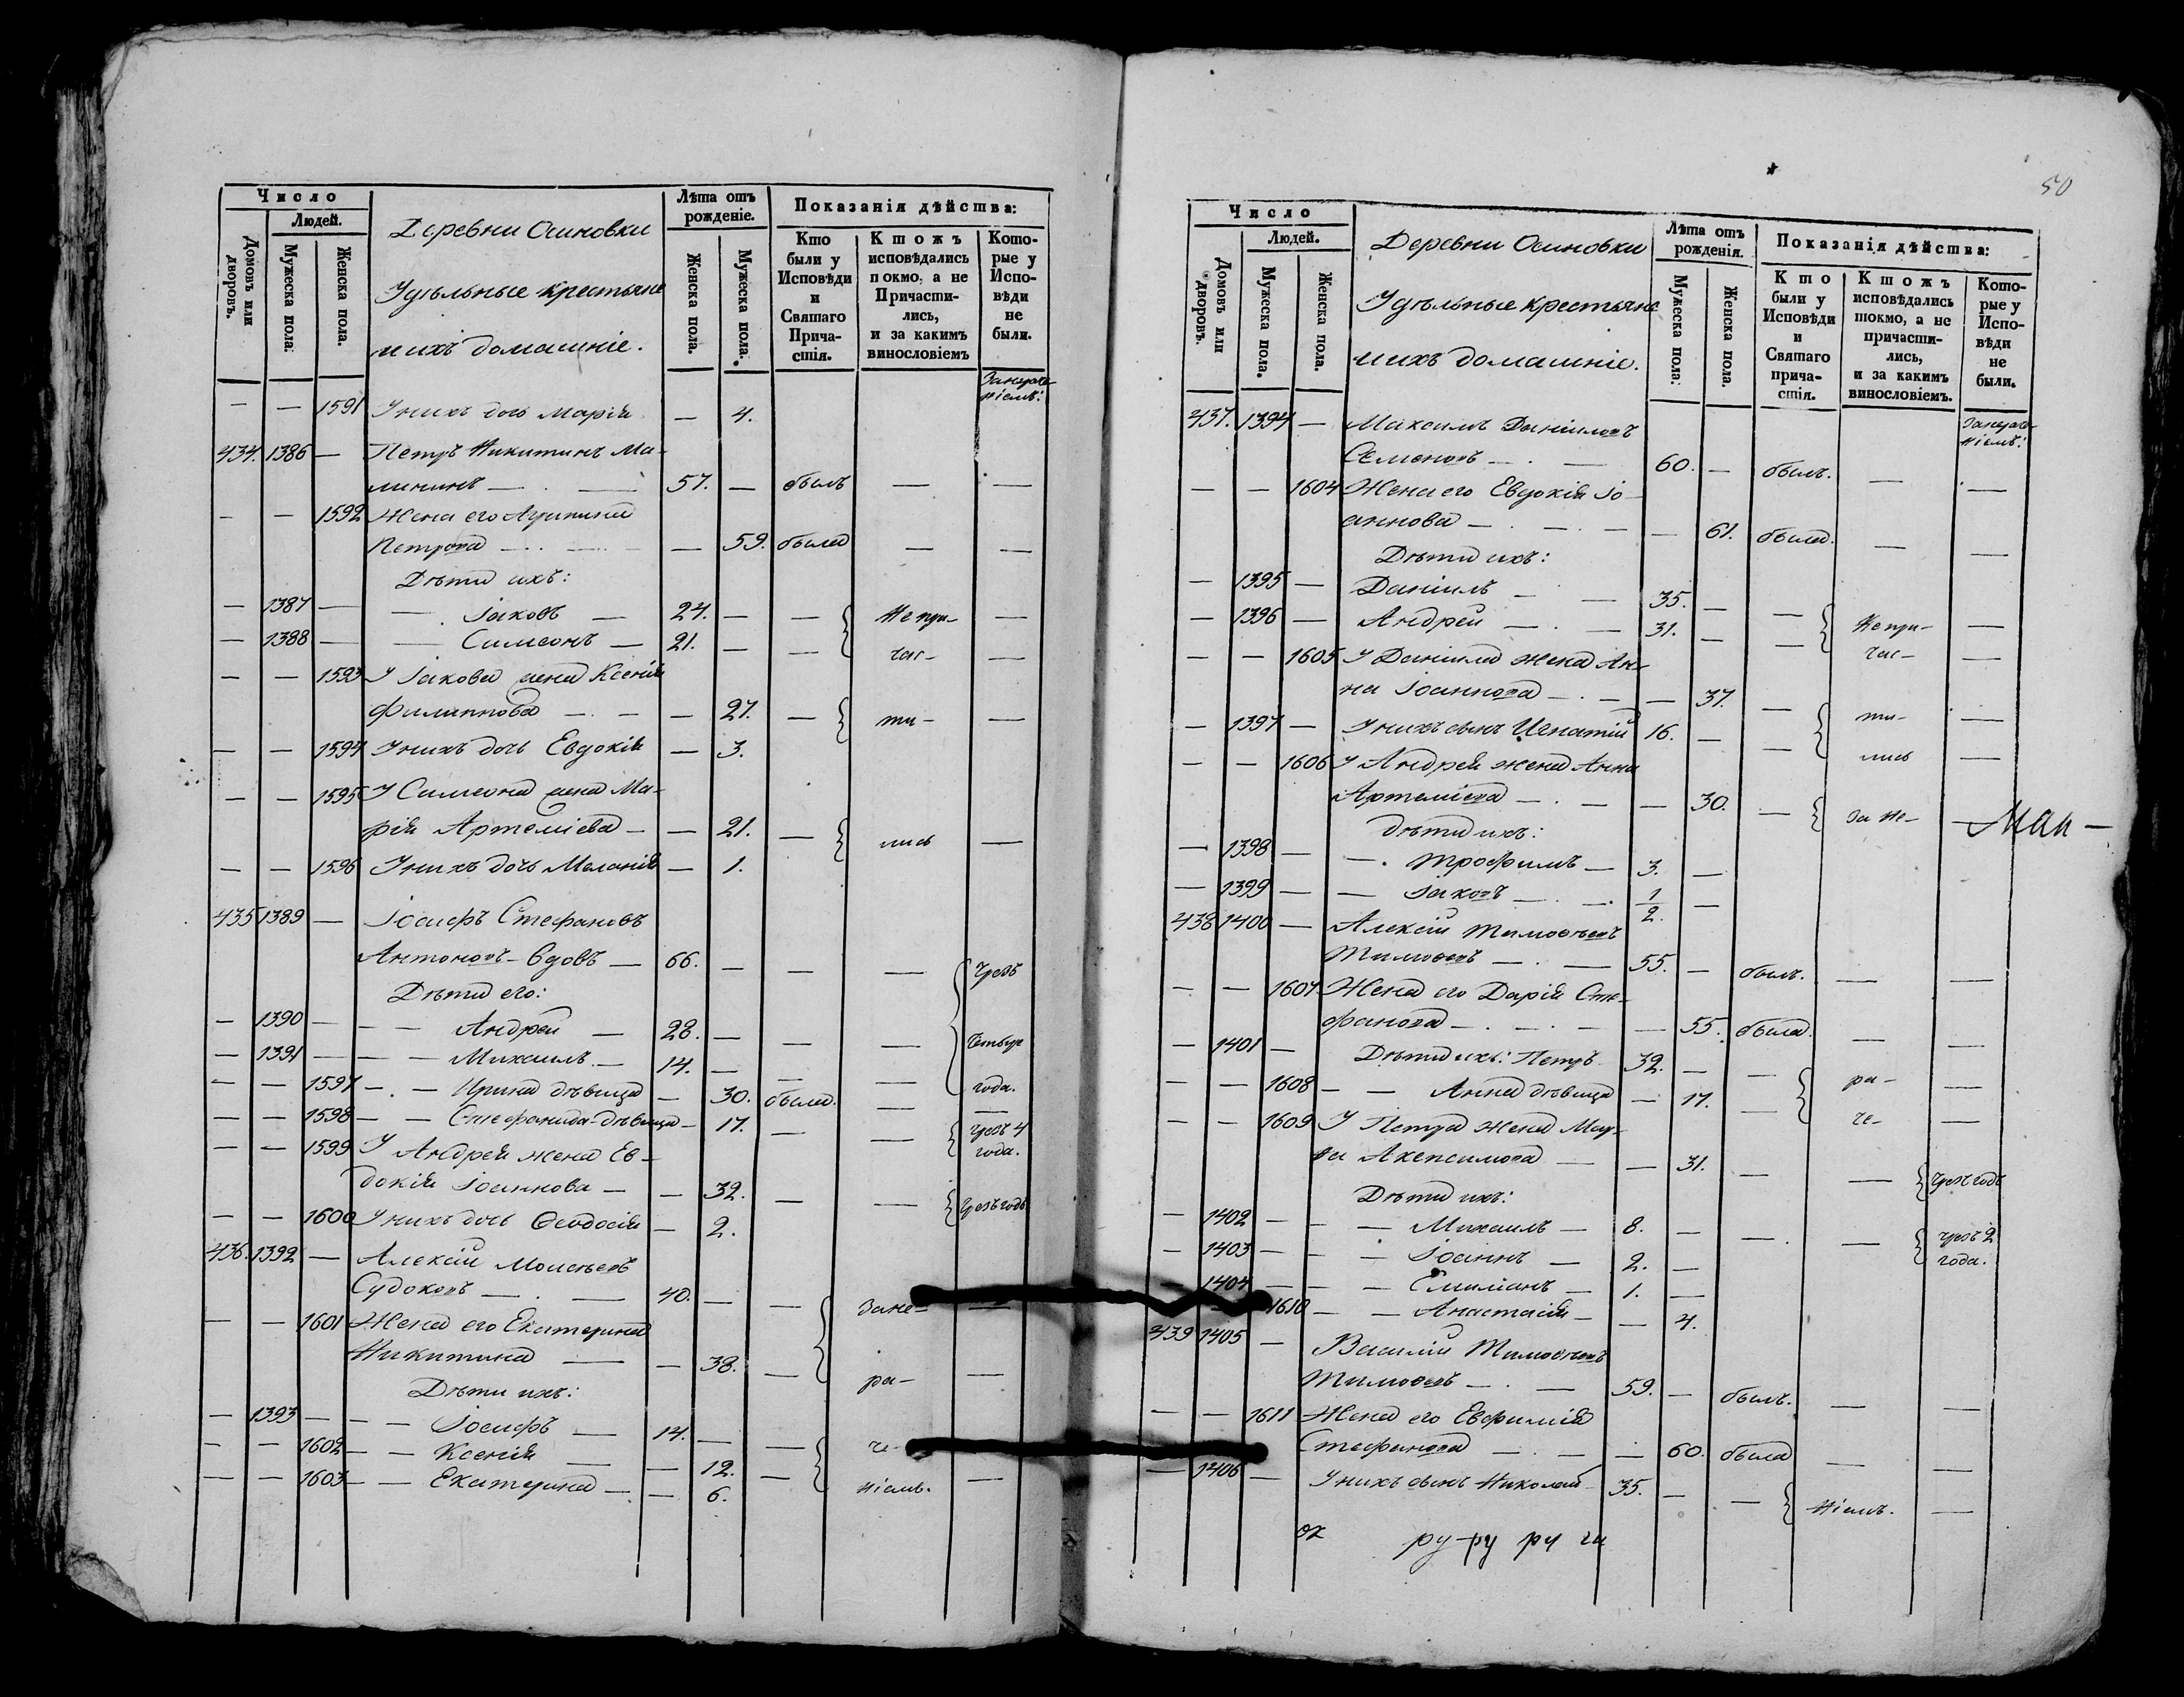 Число
Людей.
Домовъ или дворовъ.
Мужеска пола:
Женска пола.
Деревни Осиновки
Удѣльные крестьяне
и ихъ домашніе.
Лѣта отъ рожденіе.
Женска пола.
Мужеска пола.
Показанія дѣйства:
Кто были у Исповѣди и Святаго Прича-стія.
Ктожъ исповѣдались покмо, а не Причасти-лись, и за какимъ винословіемъ
Кото-рые у Испо-вѣди не были.
— — 1591 У нихъ дочь Марія — 4.
434. 1386 — Петръ Никитинъ Ма-
лининъ — 57. — былъ — —
— — 1592 Жена его Агрипина
Петрова — — 59. была — —
Дѣти ихъ:
— 1387 — — Іаковъ — 24. — — Не при- —
— 1388 — — Симеонъ — 21. — — час- —
— — 1593 У Іакова жена Ксенія
Филиппова — — — 27. — ти- —
— — 1594 У нихъ дочь Евдокія — 3.
— — 1595 У Симеона жена Ма-
рія Артеміева — — 21. — лись —
— — 1596 У нихъ дочь Меланія — 1.
435 1389 — Іосифъ Стефановъ
Антоновъ - вдовъ — 66. — — — Чрезъ
Дѣти его:
— 1390 — — — Андрей — 28. — — — Четыре
— 1391 — — — Михаилъ — 14. — — — года.
— — 1597 — — Ирина дѣвица — 30. была. — —
— — 1598 — — Стефанида - дѣвица — 17. — — Чрезъ 4 года.
— — 1599 У Андрея жена Ев-
докія Іоаннова — — 32. — — Чрезъ годъ
— — 1600 У нихъ дочь Ѳеодосія — 2.
436. 1392 — Алексій Моисеевъ
Судоковъ — 40. — — Зане- —
— — 1601 Жена его Екатерина
Никитина — — 38. — ра- —
Дѣти ихъ:
— 1393 — — — Іосифъ — 14. — — че-
— — 1602 — — Ксенія — — 12.
— — 1603 — — Екатерина — — 6. — ніемъ. —
50
Число
Людей.
Домовъ или дворовъ.
Мужеска пола.
Женска пола.
Деревни Осиновки
Удѣльные крестьяне
и ихъ домашніе.
Лѣта отъ рожденія.
Мужеска пола:
Женска пола.
Показанія дѣйства:
Кто были у Исповѣди и Святаго прича-стія.
Ктожъ исповѣдались токмо, а не причасти-лись, и за какимъ винословіемъ.
Кото-рые у Испо-вѣди не были.
437. 1394 — Максимъ Даниловъ
Семеновъ — 60. — былъ. — —
— — 1604 Жена его Евдокія Іо-
аннова — — 61. была. — —
Дѣти ихъ:
— 1395 — Даніилъ — 35. — —
— 1396 — Андрей — 31. — — Не при- —
— — 1605 У Даніила жена Ан- час- —
на Іоаннова — — 37. —
— 1397 — У нихъ сынъ Игнатій 16. — — ти- —
— — 1606 У Андрея жена Анна лись —
Артеміева — — 30. — За не- — Мап —
дѣти ихъ:
— 1398 — — Трофимъ — 3. —
— 1399 — — Іаковъ — 1/2. —
438 1400 — Алексій Тимоѳеевъ
Тимоѳеевъ — 55. — былъ. — —
— — 1607 Жена его Дарія Сте-
фанова — — 55. была. — —
— 1401 — Дѣти ихъ: Петръ 32. — — ра- —
— — 1608 — — Анна дѣвица — 17. — че- —
— — 1609 У Петра жена Мар-
ѳа Акепсимова — — 31. — — Чрезъ годъ
Дѣти ихъ:
— 1402 — — — Михаилъ — 8. — — — чрезъ 2
— 1403 — — Іоаннъ — 2. — года.
— 1404 — — — Емиліанъ — 1. —
1610 — — Анастасія — — 4.
439 1405 — Василій Тимоѳеевъ
Тимоѳеевъ — 59. — былъ. — —
— — 1611 Жена его Евфимія
Стефанова — — 60. была — —
— 1406 — У нихъ сынъ Николай 35. — — ніемъ. —
ру ру ру